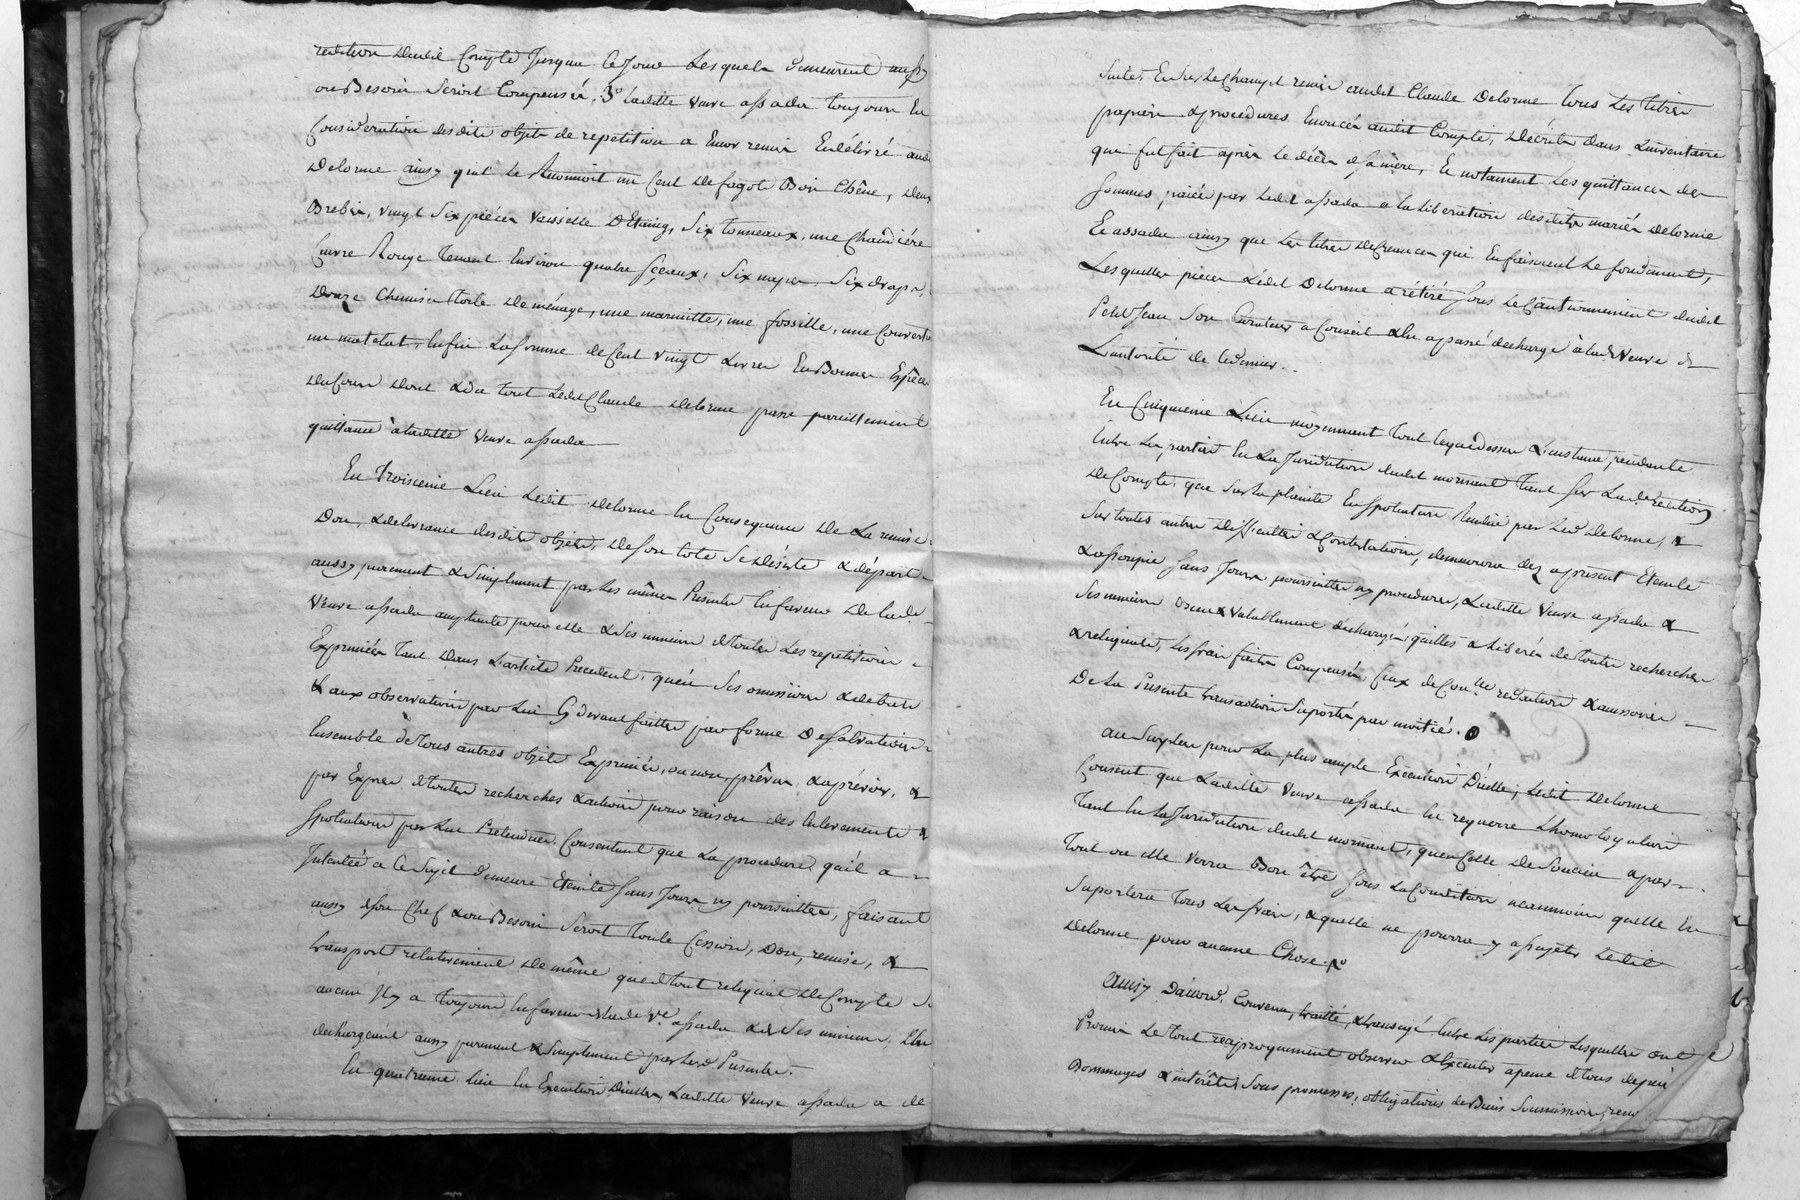 reddition dudit Compte Jusqu'a Ce Jour Lesquels demeurent aussy
ou Besoin Seroit Compensés, 3° laditte veuve assada toujours En
Consideration desdits objets de repetition a Encor remis Endélivré aud
Delorme ainsy quil le Reconnoit un Cent de fagots Bois Chêne, deux
Brebis, vingt Six pièces vaisselle D'Etaing, Six tonneaux, une Chaudière
Cuivre Rouge Tenant Environ quatre Sçeaux, Six napes, Six draps,
Douze Chemises toile de ménage, une marmitte, une fossille, une Couverte
un matelat, Enfin La Somme de Cent vingt Livres En Bonnes Espèces
du Cours dont & du tout Ledit Claude Delorme passe pareillement
quittance a laditte Veuve assada
En Troisieme Lieu Ledit Delorme En Consequence de La remise
Don, & delivrance desdits objets, de Son Coté Se Désiste & départ
aussy purement & Simplement par les mêmes Presentes En faveur de lade
Veuve assada acceptante pour elle & Ses mineurs de toutes Les repetitions
Exprimées tant Dans L'article Precedent, qu'en Ses omissions & debets
& aux observations par Lui Cy devant faittes par forme de Salvations
Ensemble de tous autres objets Exprimés, ou non, prévus & a prévoir, &
par Exprès de toutes recherches & actions pour raison des Enlevements &
Spoliations par Lui Pretendues Consentant que La procedure qu'il a
Intentée a Ce Sujet demeure Eteinte Sans Jours ny poursuittes, faisant
aussy de Son Chef & ou Besoin Seroit Toute Cession, Don, remise, &
transport relativement de même que de tout reliquat de Compte Si
aucun Il y a toujours En faveur de lade ve assada & de Ses mineurs, L'En
dechargeant aussy purement & Simplement par Lesd. Presentes.
En quatrieme Lieu En Execution D'icelles, Laditte veuve assada a de
Suite, Et Sur Le Champ remis audit Claude Delorme tous Les titres
papiers & procedures Enoncés audit Compte, Décrits dans L'inventaire
qui fut fait après Le décès de Sa mère, Et notament Les quittances des
Sommes paiées par Ledit assada a la liberation desdits mariés Delorme
Et assada ainsy que Les titres de Creances qui En faisoient Le fondement,
Lesquelles pieces Ledit Delorme a rétiré Sous Le Cautionnement dudit
Petit Jean Son Curateur a Conseil & En a passé decharge à lade Veuve de
L'autorité de Ce dernier.
En Cinquieme Lieu moyennant tout Ce que dessus L'instance pendante
Entre Les parties En La Jurisdiction dudit mornant tant Sur Lade Reddition
de Compte, que Sur la plainte En Spoliation Rendue par Led Delorme, &
Sur toutes autres Difficultés & Contestations, demeurera dez apresent Eteinte
& assoupie Sans Jours poursuittes ny procedures, Laditte veuve assada &
Ses mineurs Bien & valablement dechargés, quittes & liberés de toutes recherches
& reliquats, Les frais faits Compensés, Ceux de Conlle redaction & aussoires
De La Presente transaction Suportés par moitié.
au Surplus pour La plus ample Execution D'icelle, Ledit Delorme
Consent que Laditte veuve assada En requerre L'homologation
tant En la Jurisdiction dudit mornant, qu'en Celle de Soucieu a part
tout ou elle verra Bon être Sous La Condition neanmoins quelle En
Suportera Tous Les frais, & quelle ne pourra y assujetir Ledit
Delorme pour aucune Chose.
Ainsy D'accord, Convenu, traitté, & transigé Entre Les parties Lesquelles ont
Promis Le tout reciproquement observer & Executer a peine de tous depens
Dommages & intérêts, Sous promesses, obligations de Biens Soumissions, renon